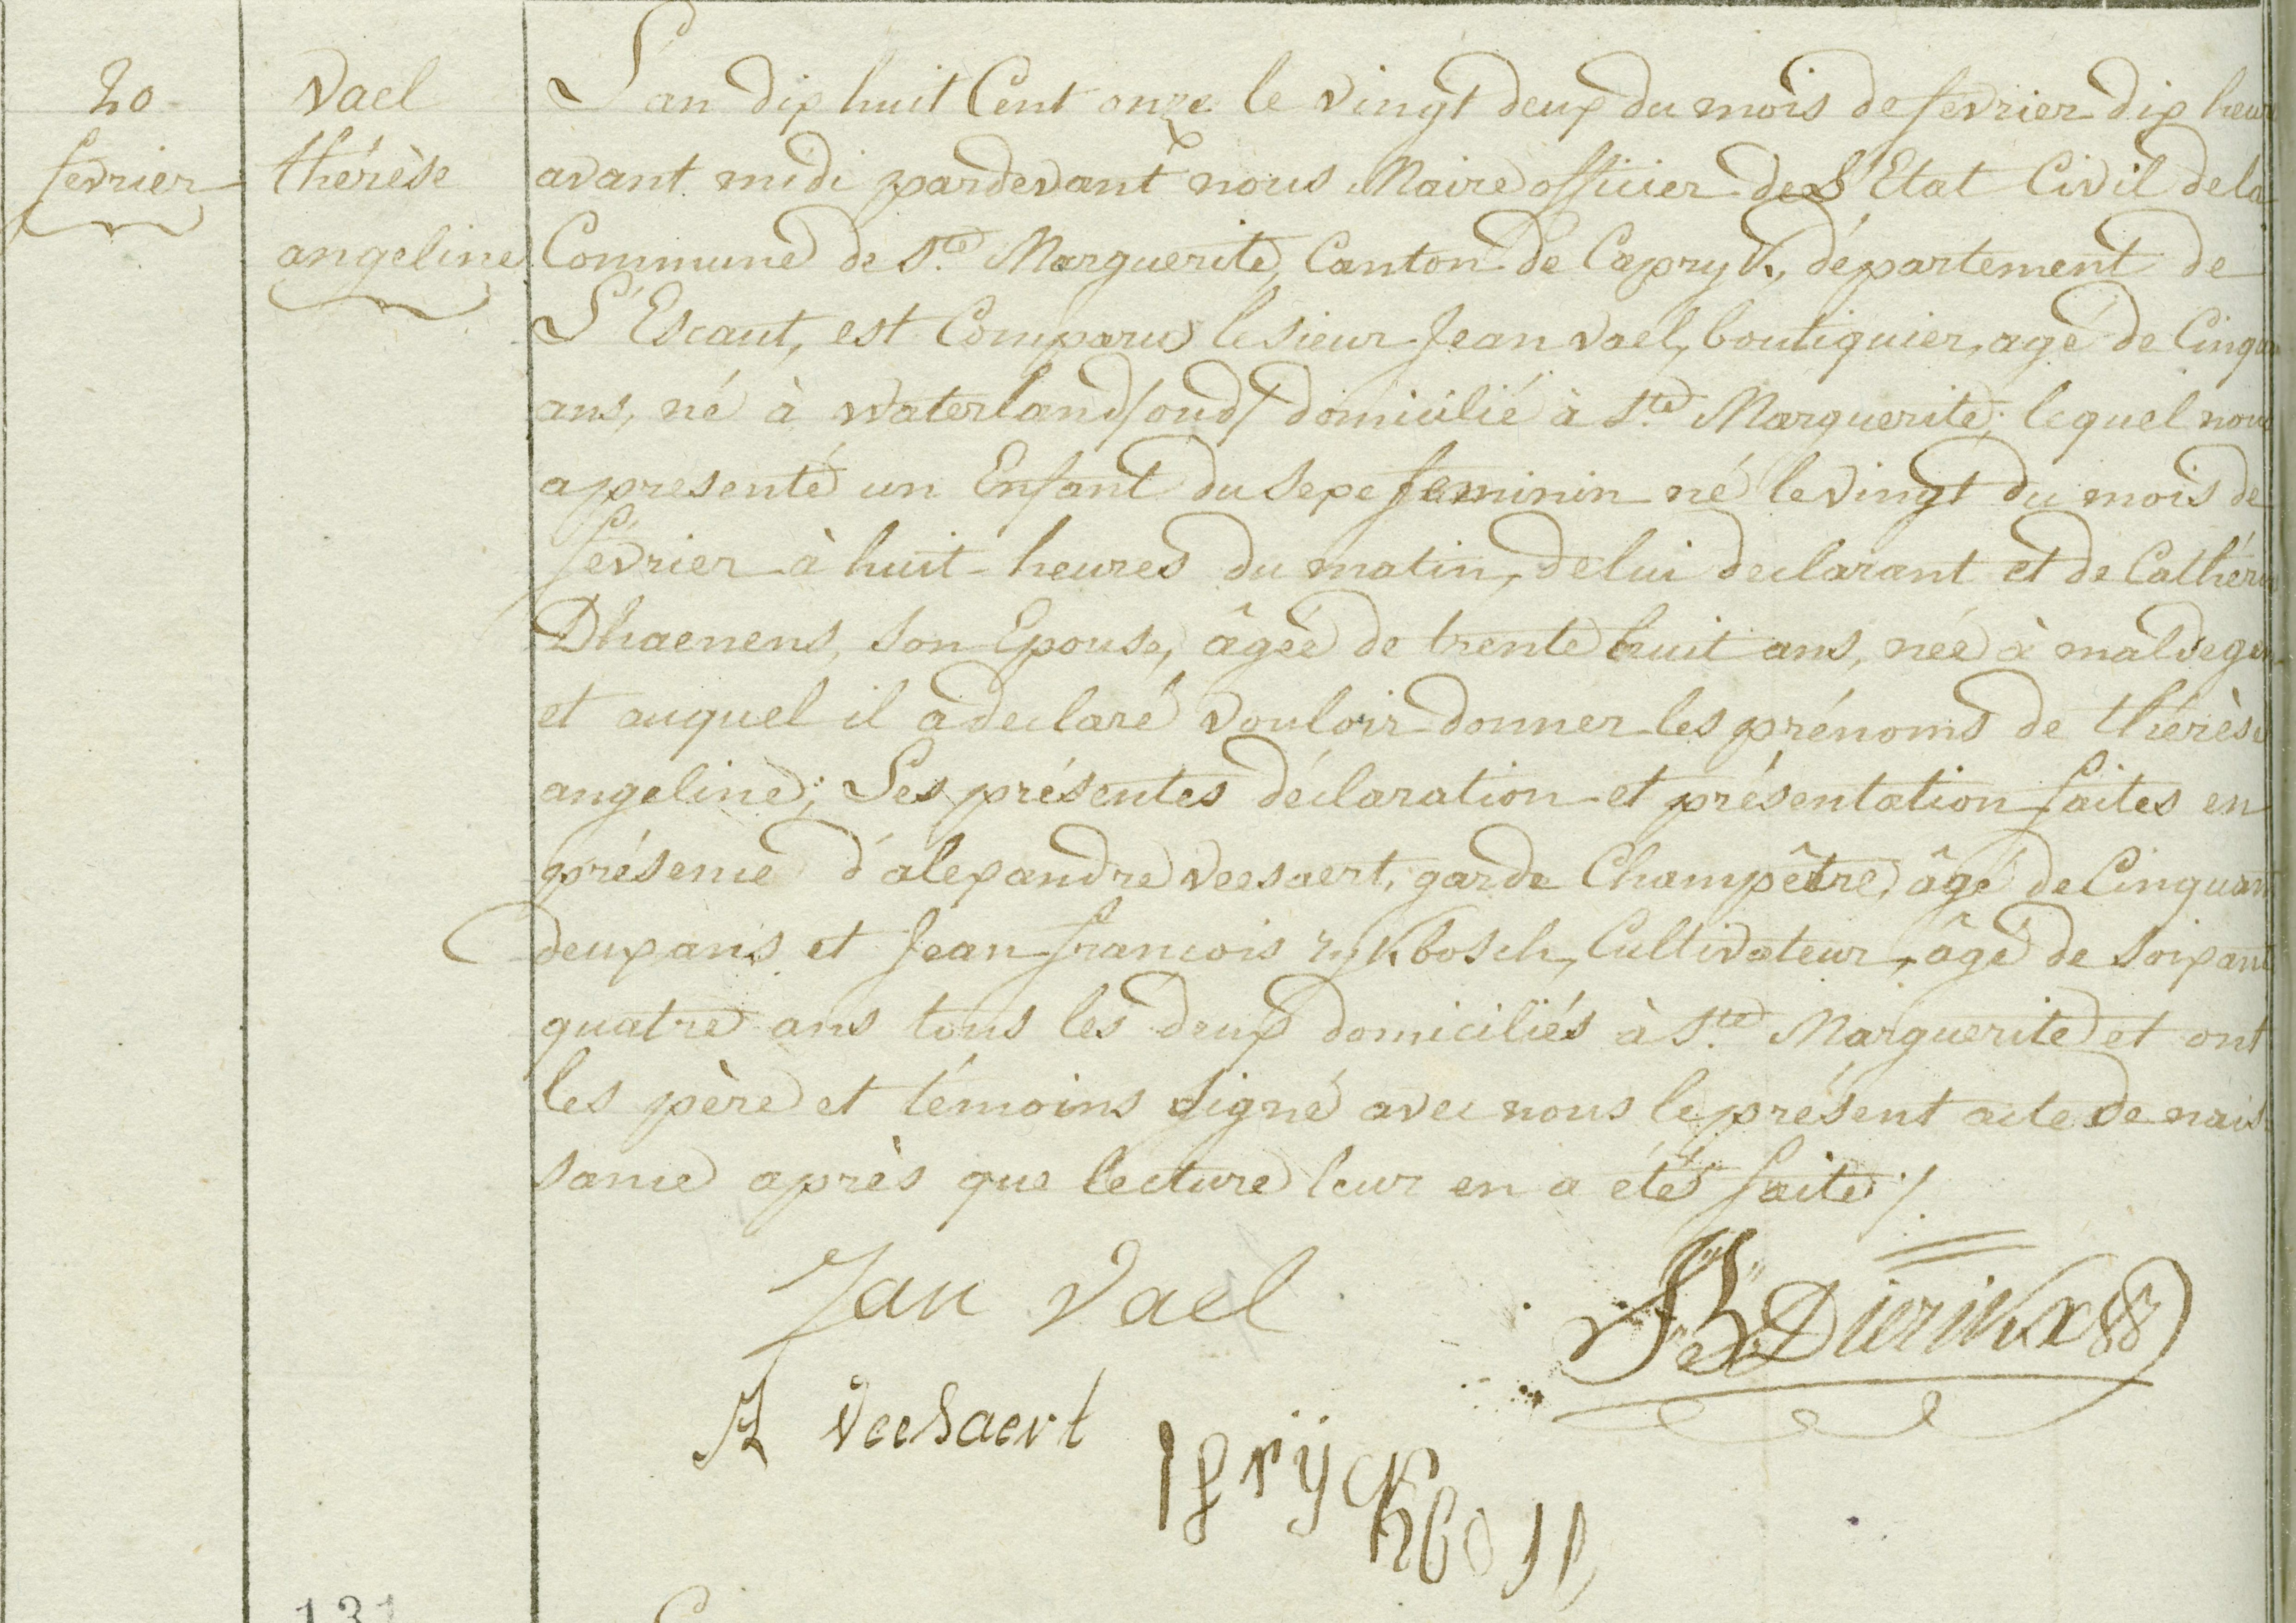 20
fevrier
Vael
thérèse
angeline
L'an dix huit Cent onze le vingt deux du mois de fevrier dix heur
avant midi pardevant nous Maire officier de L'Etat Civil de la
Commune de Ste Marguerite, Canton de Capryk, département de
L'Escaut, est Comparu le sieur Jean vael, boutiquier, agé de Cinqu
ans, né à waterland /oud/ domicilié à Ste Marguerite; lequel nous
a presenté un Enfant du sexe feminin né le vingt du mois de
fevrier à huit heures du matin, de lui declarant et de Cathérin
Dhaenens, son Epouse, âgée de trente huit ans, née à maldegem
et auquel il a declaré vouloir donner les prénoms de thérèse
angeline; Les présentes déclaration et présentation faites en
présence d'alexandre Veesaert, garde Champêtre, âgé de Cinquan
deux ans et Jean francois rykbosch, Cultivateur, âgé de soixant
quatre ans tous les deux domiciliés à Ste Marguerite et ont
les père et témoins signé avec nous le présent acte de nais
sance après que lecture leur en a étés faite /.
Jan Vael
Dierikx
A Veesaert
J f rÿckbos
131